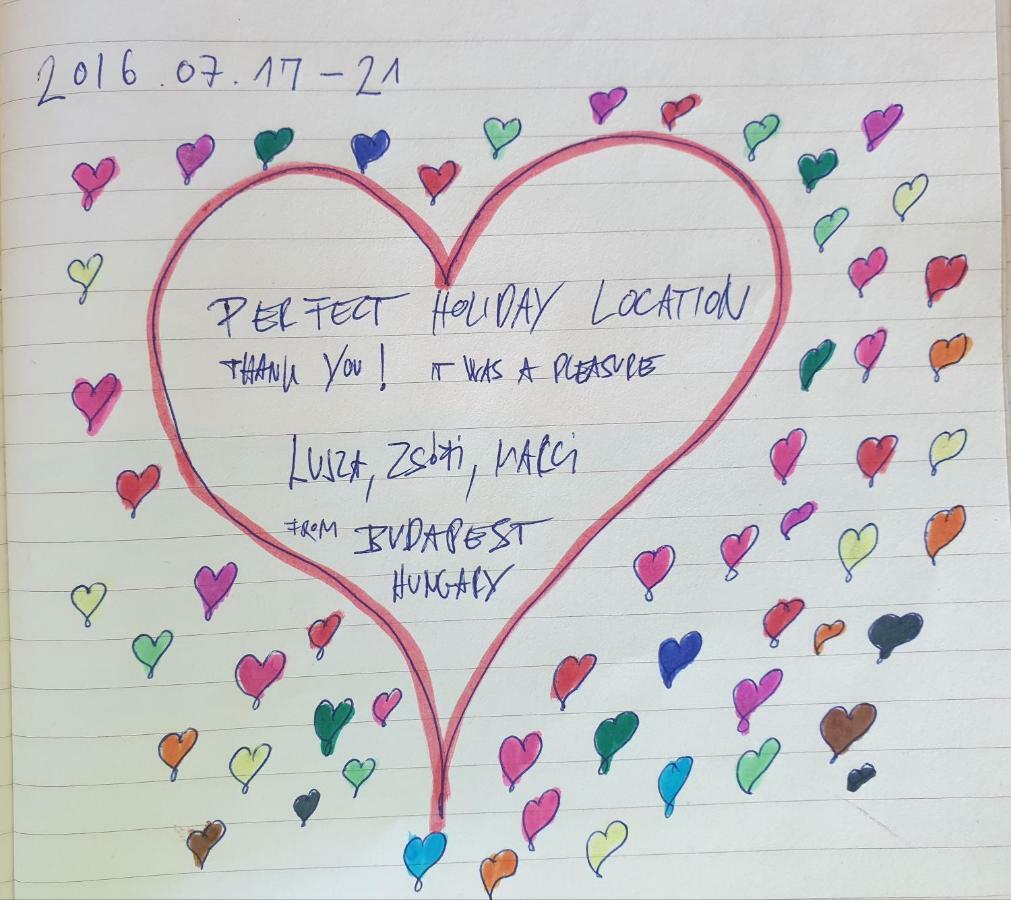 2016.07.17-21
PERFECT HOLIDAY LOCATION
THANK YOU! IT WAS A PLEASURE
MARCI
FROM BUDAPEST
HUNGARY